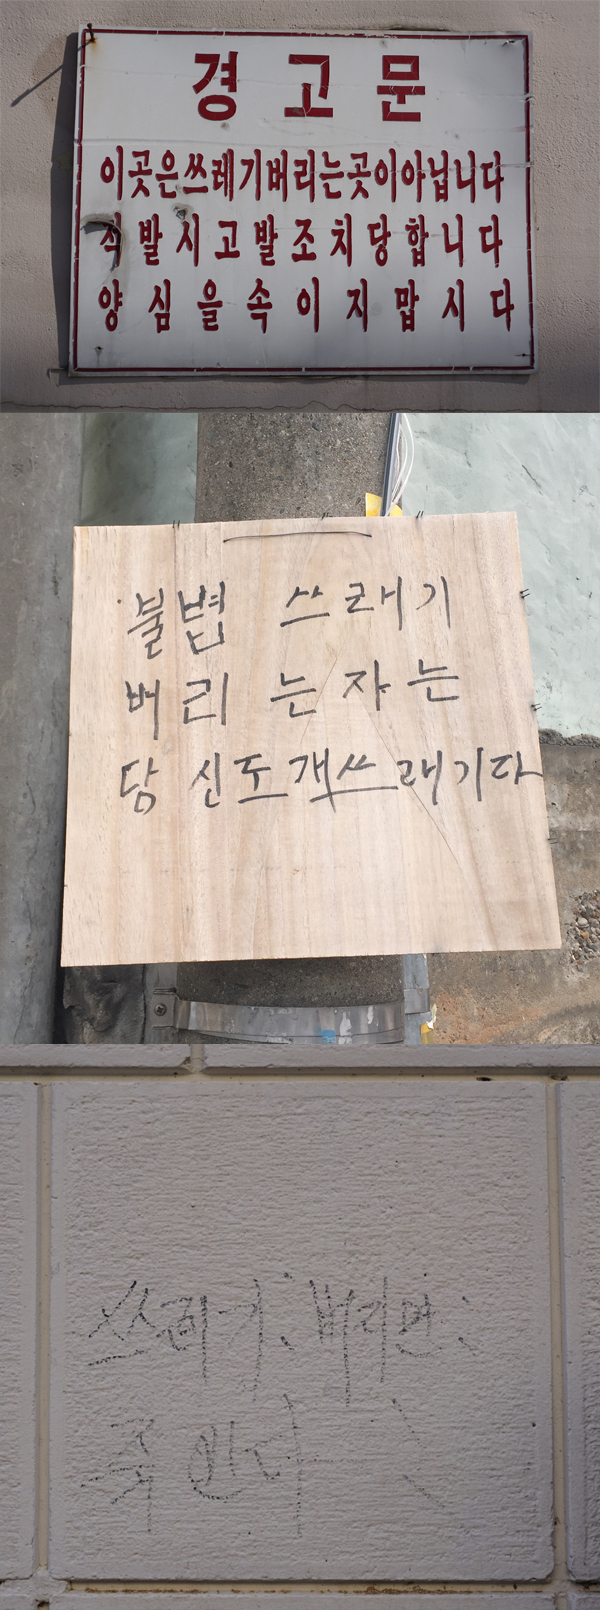 경고문
이곳은쓰레기버리는곳이아닙니다
적발시고발조치당합니다
양심을속이지맙시다
불법 쓰래기
버리는자는
당신도개쓰래기다
쓰레기 버리면
죽인다